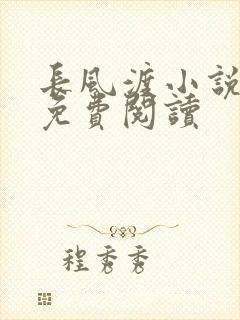 長風渡小說
免費閱讀
程秀秀